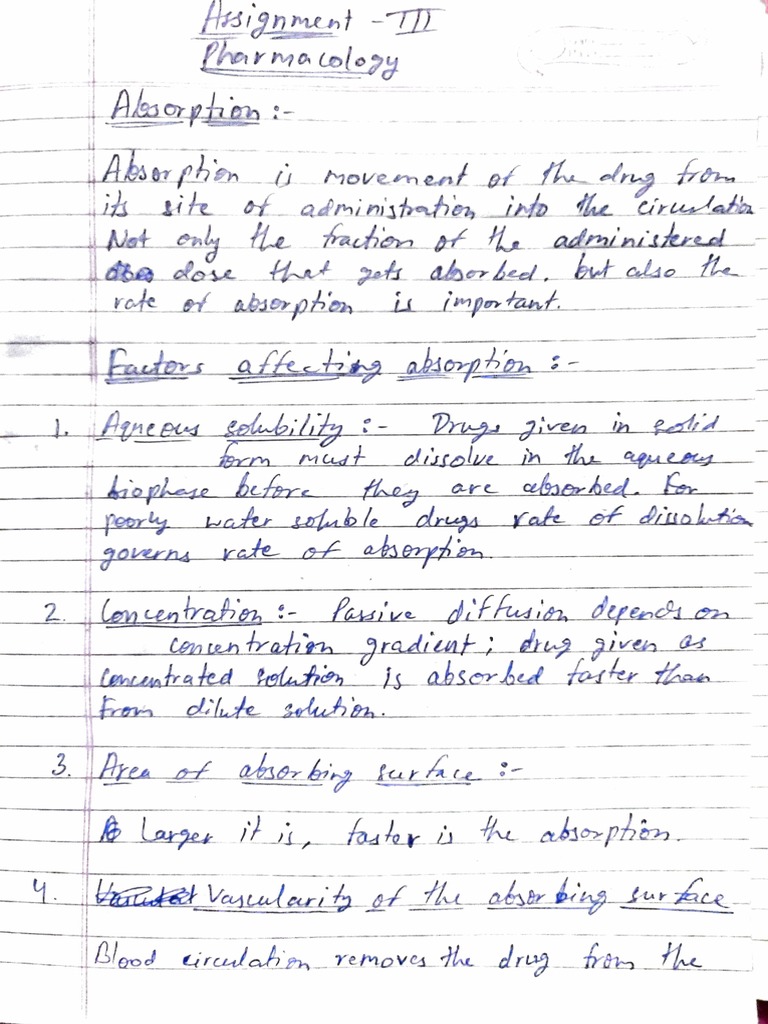 Assignment - III
Pharmacology
Absorption :-
Absorption is movement of the drug from
its site of administration into the circulation
Not only the fraction of the administered
dose that gets absorbed. but also the
rate of absorption is important.
Factors affecting absorption :-
1. Aqueous solubility :- Drugs given in solid
form must dissolve in the aqueous
biophase before they are absorbed. For
poorly water soluble drugs rate of dissolution
governs rate of absorption.
2. Concentration :- Passive diffusion depends on
concentration gradient; drug given as
concentrated solution is absorbed faster than
from dilute solution.
3. Area of absorbing surface :-
Larger it is, faster is the absorption.
4. Vascularity of the absorbing surface
Blood circulation removes the drug from the